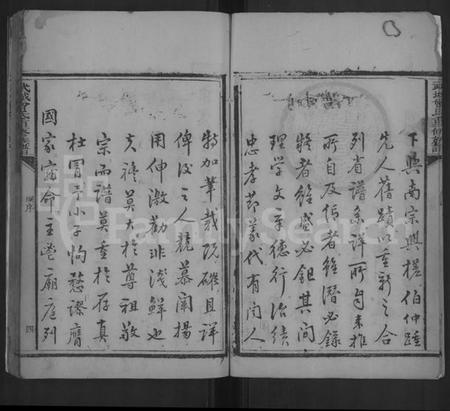 下與南宗興槎伯仲踵
先人舊績以重新之合
列省譜系詳所自來推
所自及信者雖潛必錄
疑者雖盛必鉏其間
理學文章德行治績
忠孝節義代有聞人
特加筆裁既確且詳
俾後之人競慕闡揚
用伸激勸非淺鮮也
夫禮莫大於尊祖敬
宗而譜莫重於存真
杜冒予小子恂愁謬膺
國家寵命主鬯廟庭列
四
FamilySearch